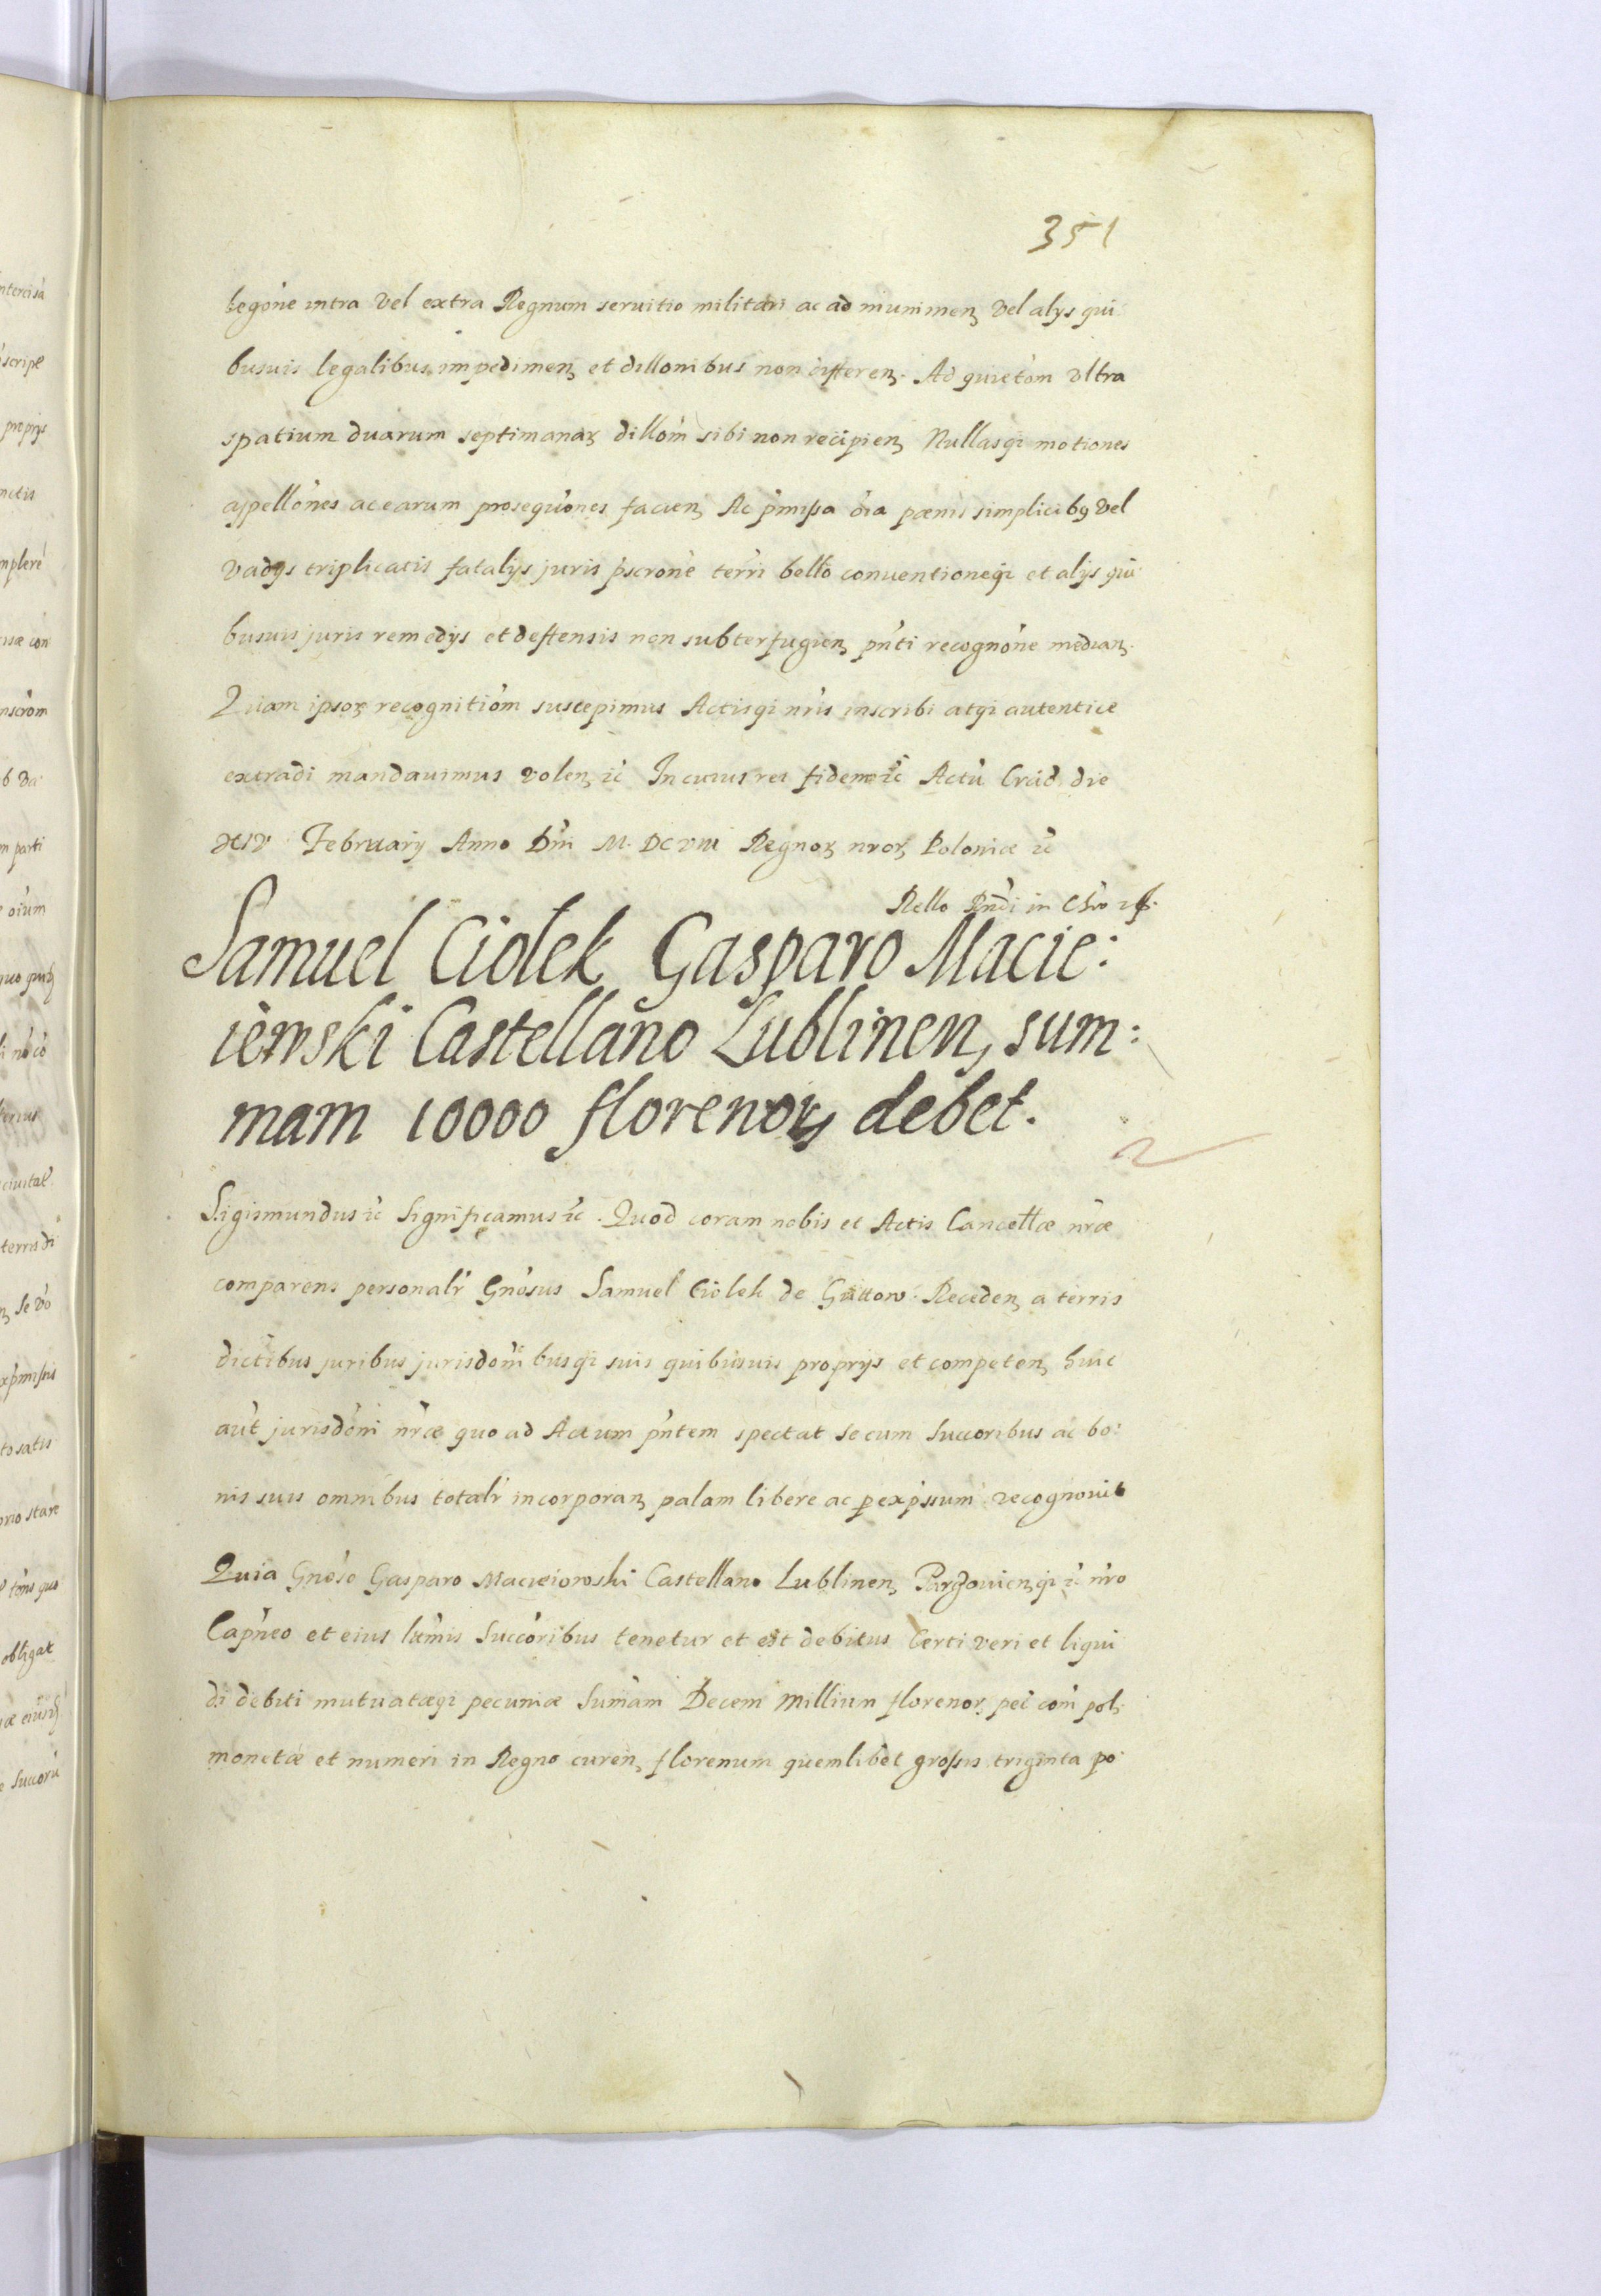 351
legone intra vel extra Regnum seruitio militari ac ad munimenꝫ vel alys qui
busuis legalibus impedimenꝫ et dillonibus non differenꝫ. Ad quietom vltra
spatium duarum septimanaꝝ dillom sibi non recipienꝫ Nullasqꝫ motiones
appellones ac earum prosequiones facienꝫ Ac pmissa oia pœnis simplicibꝯ vel
vadys triplicatis fatalys juris pscrone terri bello conuentioneqꝫ et alys qui
busuis juris remedys et deffensis non subterfugienꝫ pnti recognone medianꝫ.
Quam ipsoꝝ recognitiom suscepimus Actisqꝫ nris inscribi atqꝫ autentice
extradi mandauimus volenꝫ ꝛc In cuius rei fidem ꝛc Actu Crac die
xiv February Anno Dni M. DCXVIII Regnoꝝ nroꝝ Poloniæ ꝛc
Rello Rndi in Chro
Samuel Ciolek Gasparo Macie:
iewski Castellano Lublinenꝫ sum:
mam 10000 florenoꝝ debet.
Sigismundus ꝛc Significamus ꝛc. Quod coram nobis et Actis Cancellæ nræ
comparens personalr Gnosus Samuel Ciolek de Recedenꝫ a terris
dictibus juribus jurisdonibusqꝫ suis quibusuis proprys et competenꝫ huic
aut jurisdoni nræ quo ad Actum pntem spectat se cum Succoribus ac bo:
nis suis omnibus totalr incorporanꝫ palam libere ac ꝑ expssum recognouit
Quia Gnoso Gasparo Macieiowski Castellano Lublinenꝫ qꝫ ꝛc nro
Capneo et eius ltmis Succoribus tenetur et est debitus Certi veri et liqui
di debiti mutuatæqꝫ pecuniæ Sumam Decem Millium florenoꝝ pec com polꝫ
monetæ et numeri in Regno curenꝫ florenum quemlibet grossis triginta po